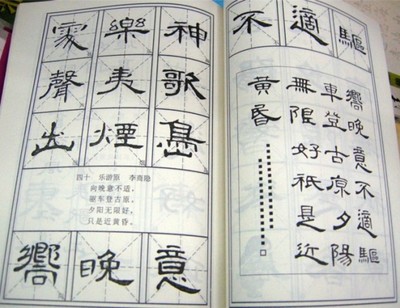 樂神
聲夷歌
出煙島
四十 乐游原 李商隐
向晚意不适,
驱车登古原。
夕阳无限好,
只是近黄昏。
嚮晚意
不適驅
嚮晚意不適驅
車登古原夕陽
無限好祇是近
黄昏